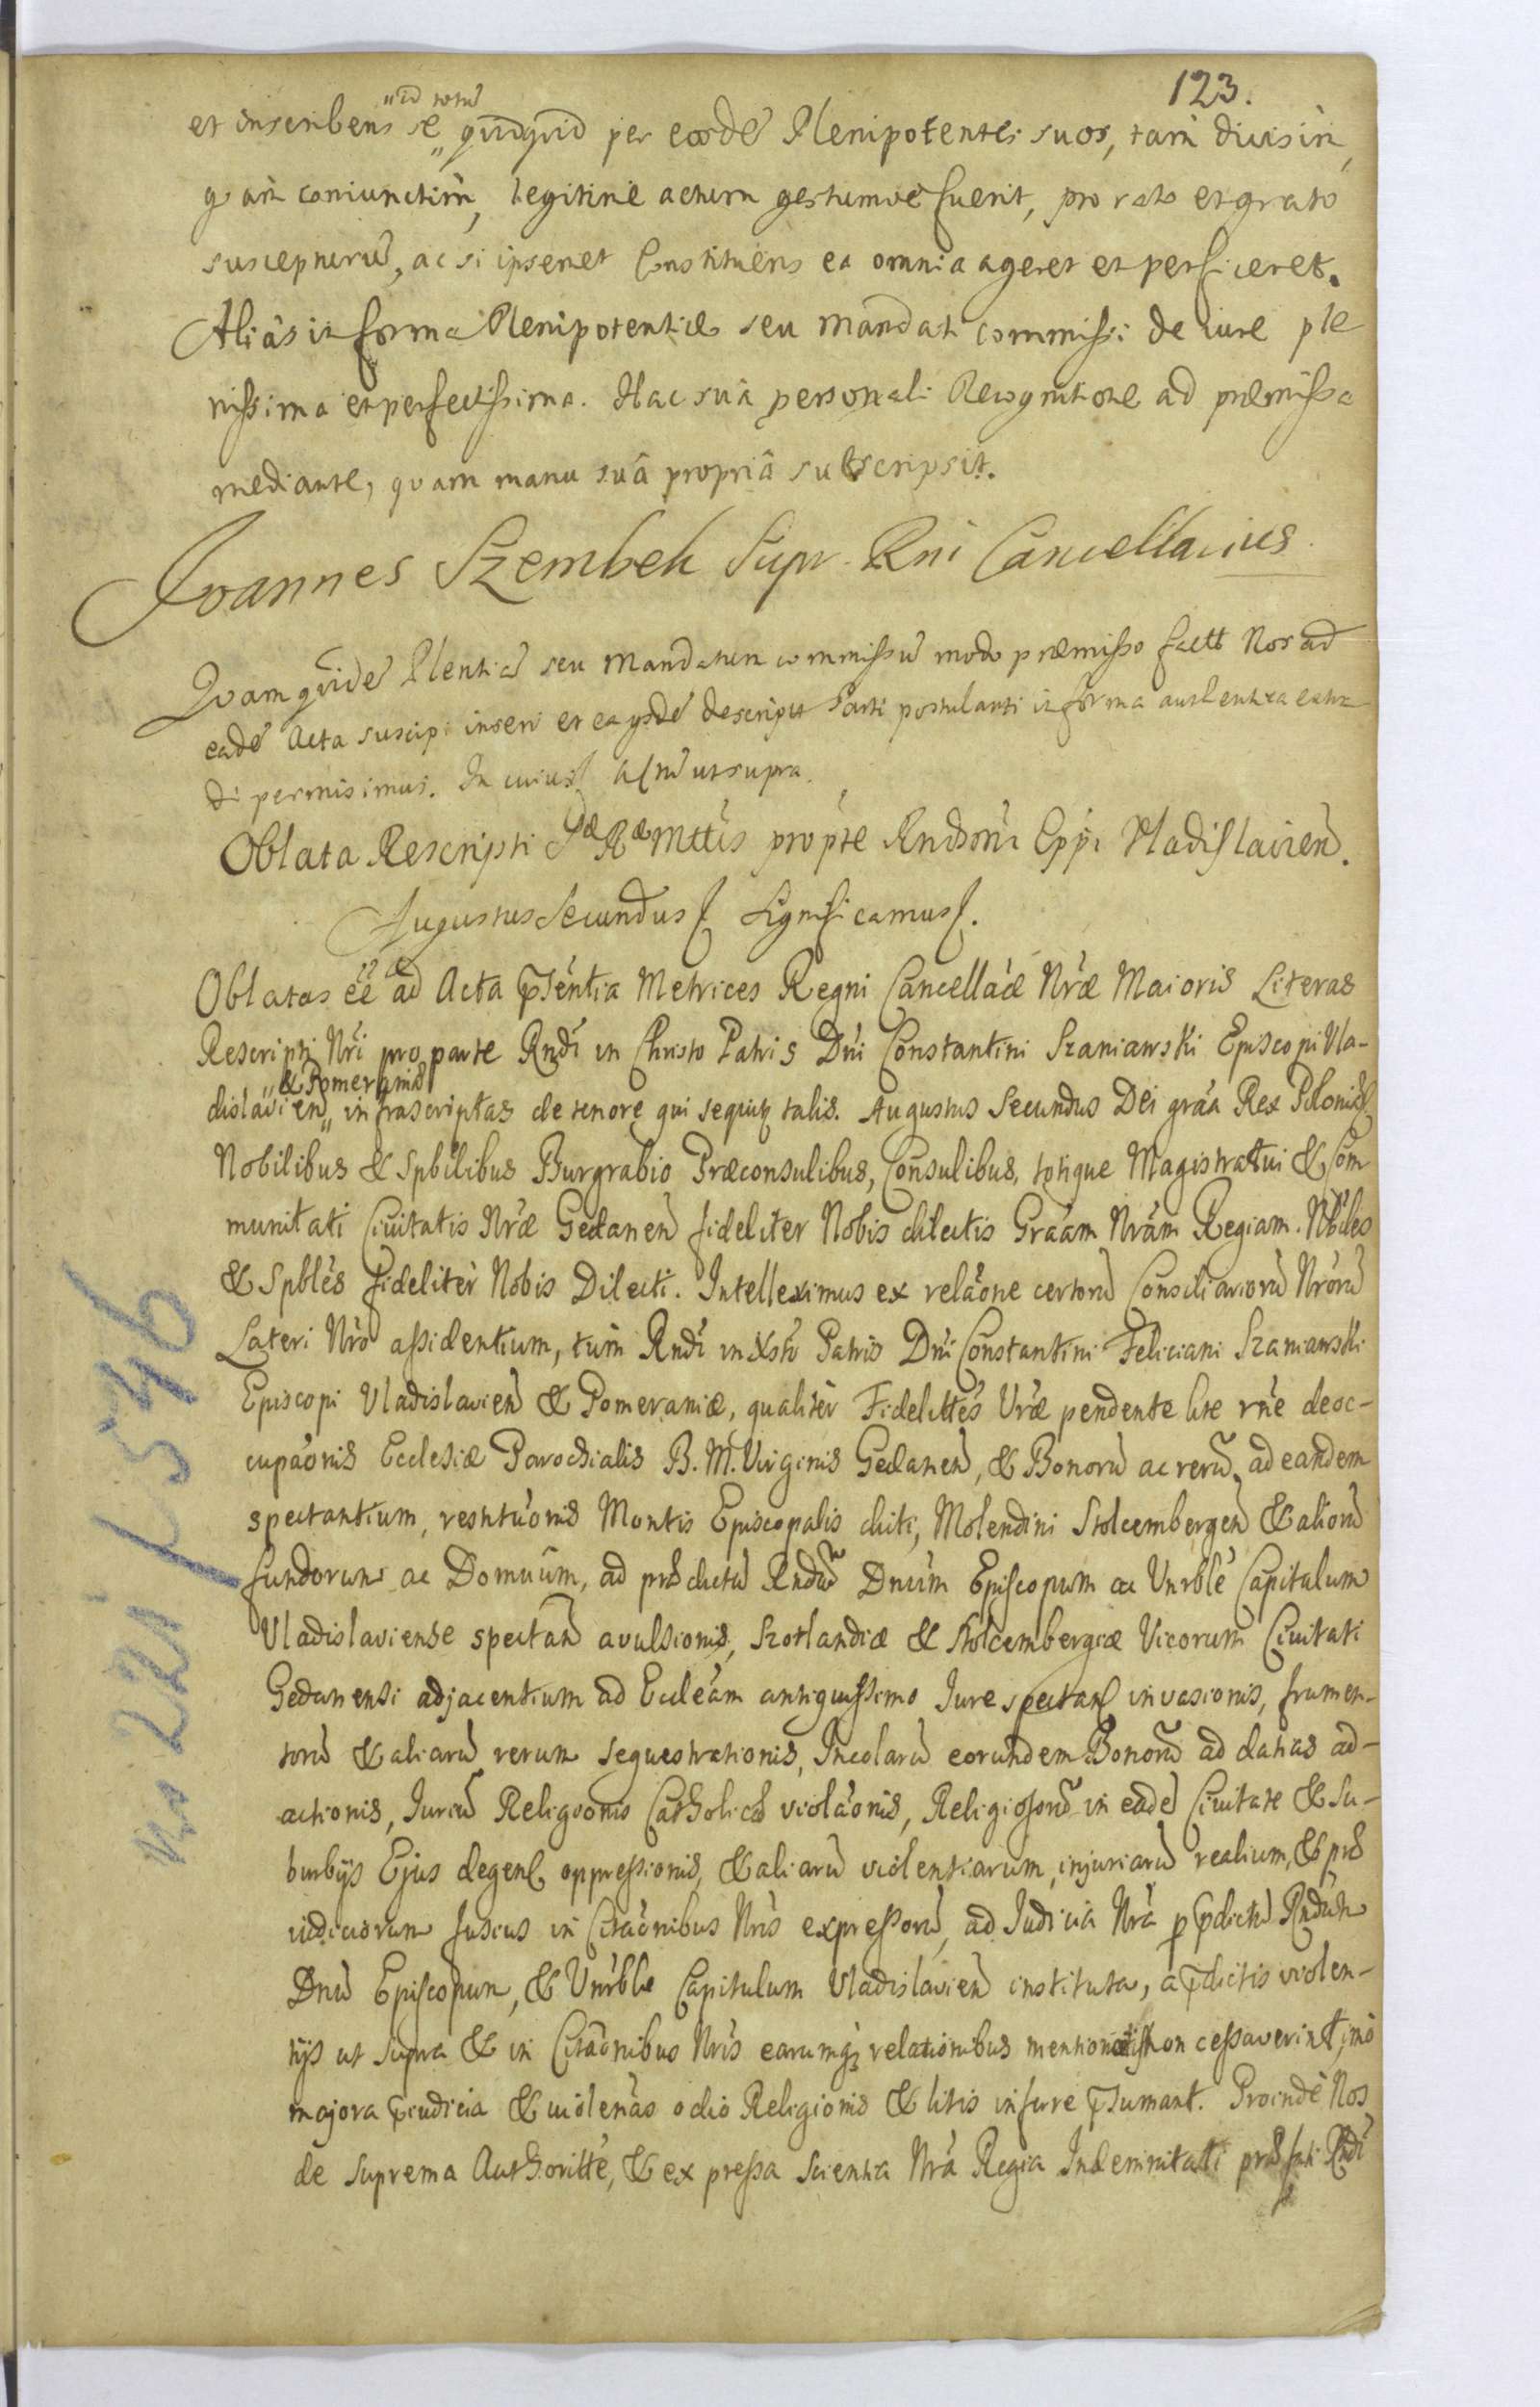 123.
et inscribens se "id totu quidquid per eosde Plenipotentes suos, tam divisim,
quam coniunctim, legitime actum gestumve fuerit, pro rato et grato
suscepturu, ac si ipsemet Constituens ea omnia ageret et perficeret.
Aliàs in forma Plenipotentiæ seu mandati commissi de iure ple
nissima et perfectissima. Hac suâ personali Recognitione ad præmissa
mediante, quam manu suâ propriâ subscripsit.
Joannes Szembek Supr. Rni Cancellarius
Quam quide Plentia seu Mandatum commissu modo præmisso factt Nos ad
eade Acta suscipi inseri et ea descripta Parti postulanti in forma authentica extra
di permisimus. In cuius Actu ut supra.
Oblata Rescripti Sæ Ræ Mttis pro pte Rndssmi Eppi Vladislavien.
Augustus Secundus Significamus.
Oblatas ee ad Acta pńtia Metrices Regni Cancellaæ Nræ Maioris Literas
Rescripti Nri pro parte Rndi in Christo Patris Dni Constantini Szaniawski Episcopi Vla-
dislavien "& Pomeraniæ" infrascriptas de tenore qui sequitur talis. Augustus Secundus Dei gráa Rex Poloniæ
Nobilibus & Spbilibus Burgrabio Præconsulibus, Consulibus, totique Magistratui & Com
munitati Civitatis Nræ Gedanen fideliter Nobis dilectis Gráam Nrám Regiam. Nbiles
& Spbles fideliter Nobis Dilecti. Intelleximus ex reláone certoru Consiliarioru Nroru
Lateri Nro assidentium, tum Rndi in Xsto Patris Dni Constantini Feliciani Szaniawski
Episcopi Vladislavien & Pomeraniæ, qualiter Fidelittes Vræ pendente lite rne deoc-
cupáonis Ecclesiæ Parochialis B. M. Virginis Gedanen, & Bonoru ac reru, ad eandem
spectantium, restituonis Montis Episcopalis dicti, Molendini Stolcembergen & alioru
fundorum ac Domuum, ad prædictu Rndu Dnum Episcopum ac Vnrble Capitulum
Vladislaviense spectan avulsionis, Szotlandiæ & Stolcembergiæ Vicorum Civitati
Gedanensi adjacentium ad Eccleam antiquissimo Jure spectan invasionis, frumen-
toru & aliaru rerum sequestrationis, Incolaru eorundem Bonoru ad datias ad-
actionis, Juriu Religionis Catholicæ violáonis, Religiosoru in eade Civitate & Su-
burbijs Ejus degen oppressionis, & aliaru violentiarum, injuriaru realium, & præ
iudiciorum fusius in Citáonibus Nris expressoru, ad Judicia Nra p pdictu Rndum
Dnu Episcopum, & Vnrble Capitulum Vladislavien instituta, a pdictis violen-
tijs ut supra & in Citáonibus Nris earumq relationibus mentionatis non cessaverint, imò
majora pjudicia & violenas odio Religionis & litis inferre psumant. Proindè Nos
de suprema Authoritte, & expressa scientia Nrá Regia Indemnitati præfati Rndi